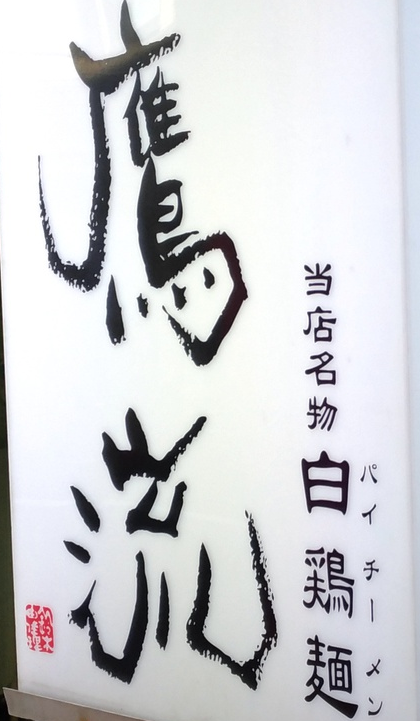 当店名物白鶏麺
パイチーメン
鷹流